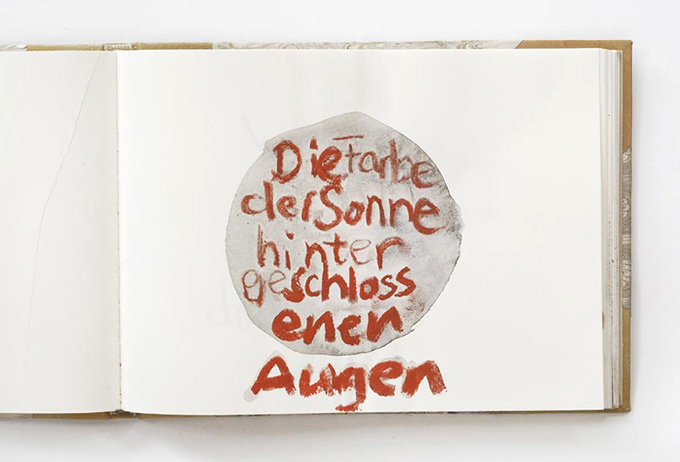 Die Farbe
der Sonne
hinter
geschloss
enen
Augen